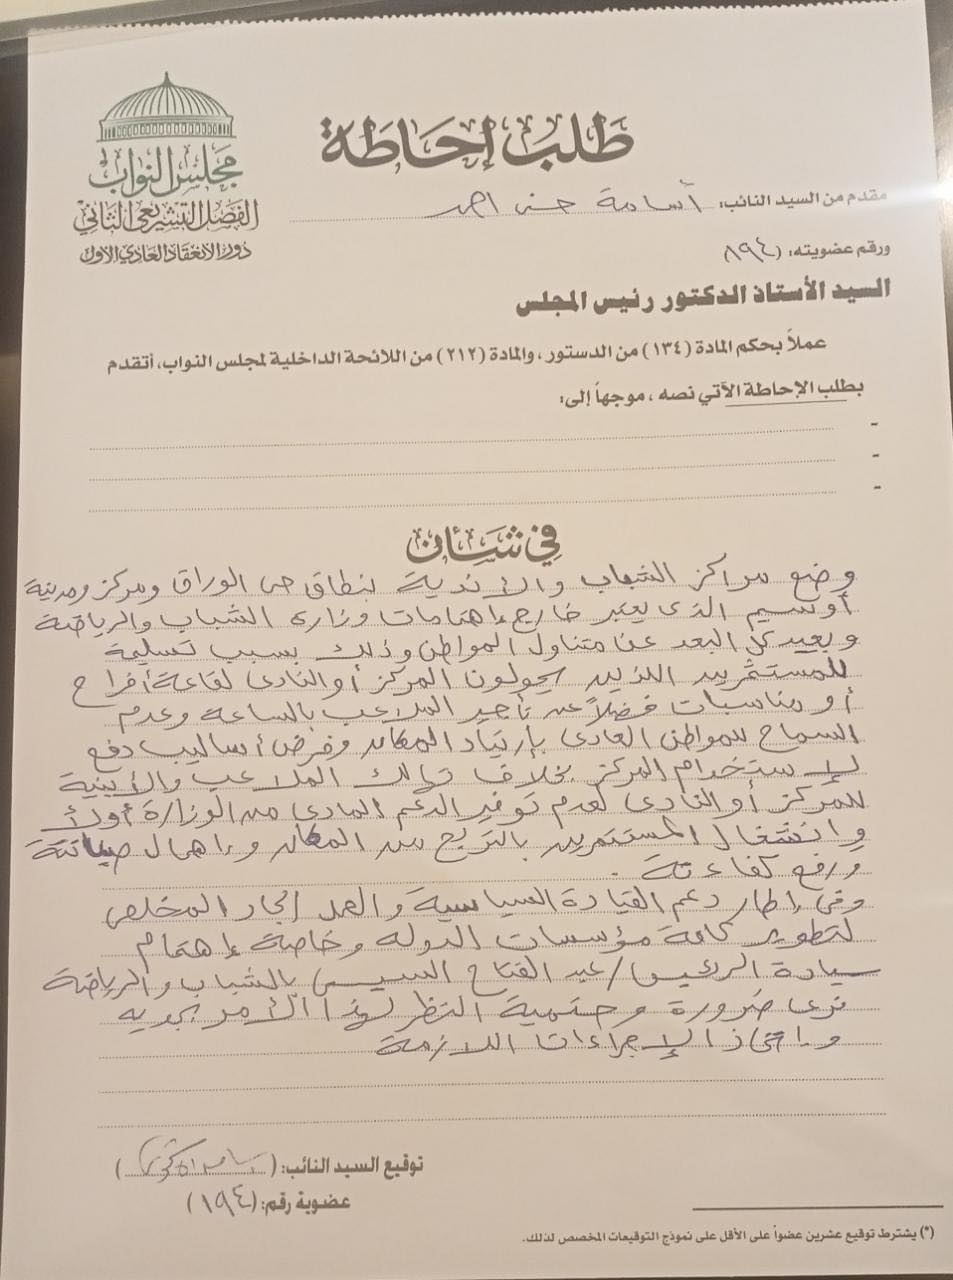 مجلس النواب
الفصل التشريعى الثانى
دور الانعقاد العادى الأول
طلب إحاطة
مقدم من السيد النائب: أسامة حسن احمد
ورقم عضويته: (٨٩٤
السيد الأستاذ الدكتور رئيس المجلس
عملاً بحكم المادة (١٣٤) من الدستور، والمادة (٢١٢) من اللائحة الداخلية لمجلس النواب، أتقدم
بطلب الإحاطة الآتي نصه، موجهاً إلى:
-
-
-
في شأن
وضع مراكز الشباب والأندية لنطاق حى الوراق ومركز ومدينة
أوسيم الذى يعتبر خارج إهتمامات وزارى الشباب والرياضة
وبعيد كل البعد عن متناول المواطن وذلك بسبب تسليمة
للمستثمرين اللذين يحولون المركز أو النادى لقاعة أفراح
أو مناسبات فضلاً عن تأجير الملاعب بالساعة وعدم
السماح للمواطن العادى بإرتياد المكان وفرض أساليب دفع
لإستخدام المركز بخلاف تهالك الملاعب والأبنية
للمركز أو النادى لعدم توفير الدعم المادى من الوزارة أولاً
وانشغال المستثمرين بالتربح من المكان وإهمال صيانتة
ورفع كفاءتة .
وفى إطار دعم القيادة السياسية والعمل الجاد المخلص
لتطوير كافة مؤسسات الدولة وخاصة إهتمام
سيادة الرئيس / عبد الفتاح السيسى بالشباب والرياضة
نرى ضرورة وحتمية النظر لهذا الأمر بجديه
وإتخاذ الإجراءات اللازمة
توقيع السيد النائب: ( )
عضوية رقم: (١٩٤)
(*) يشترط توقيع عشرين عضواً على الأقل على نموذج التوقيعات المخصص لذلك.